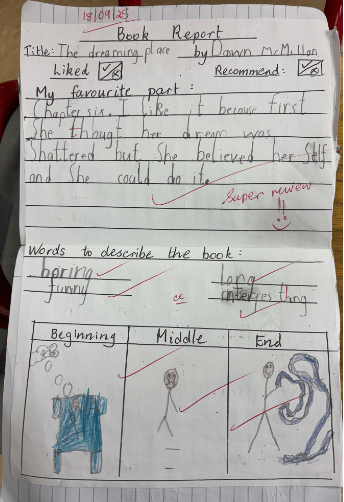 18/09/25
Book Report
Title: The dreaming place by Dawn McMillan
Liked Recommend:
My favourite part:
Chapter six. I like it because first
She thougt her dream was
Shattered but She believed her Self
and She could do it.
Super review
!!
Words to describe the book:
boring long
funny intereges tang
Beginning Middle End